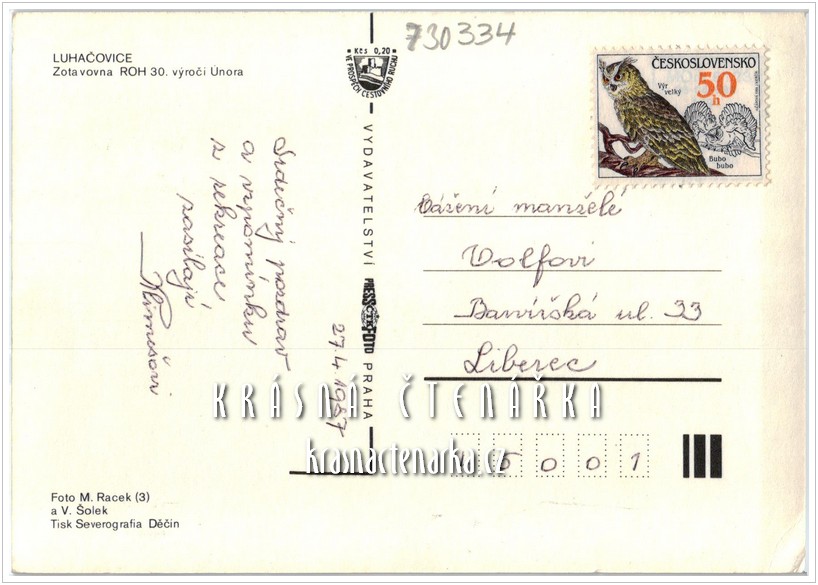 730334
LUHAČOVICE
Zotavovna ROH 30. výročí Února
Kčs 0,20
VE PROSPĚCH CESTOVNÍHO RUCHU
ČESKOSLOVENSKO
50 h
Výr
velký
Bubo
bubo
Srdečný pozdrav
a vzpomínku
z rekreace
zasílají
Klimešovi
27.4.1987
VYDAVATELSTVÍ PRESSFOTO PRAHA
ČTK
Vážení manželé
Volfovi
Banířská ul. 33
Liberec
KRÁSNÁ ČTENÁŘKA
krasnactenarka.cz
5 0 0 1
Foto M. Racek (3)
a V. Šolek
Tisk Severografia Děčín